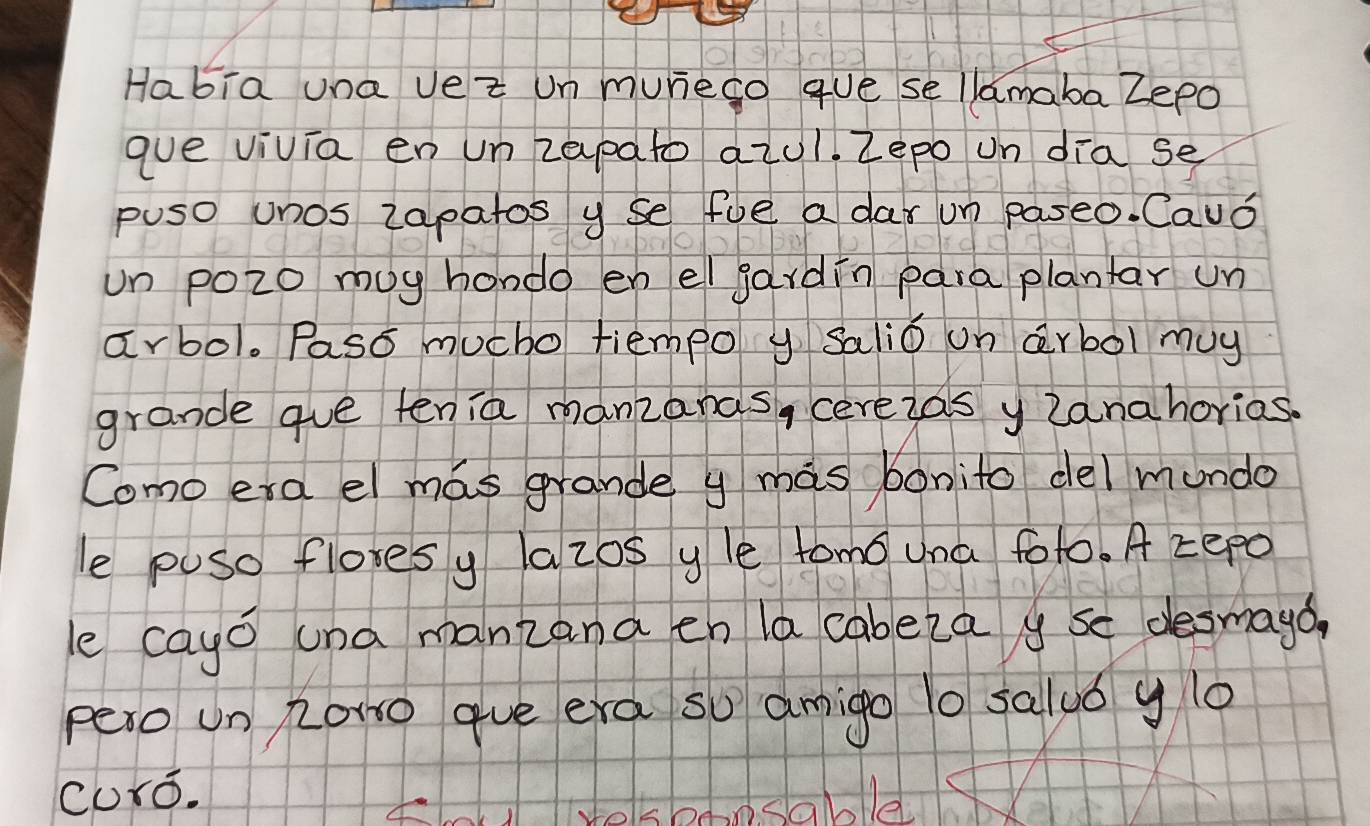 Había una vez un muñeco que se llamaba Zepo
que vivía en un zapato azul. Zepo un día se
puso unos zapatos y se fue a dar un paseo. Cavó
un pozo muy hondo en el jardín para plantar un
árbol. Pasó mucho tiempo y salió un árbol muy
grande que tenía manzanas, cerezas y zanahorias.
Como era el más grande y más bonito del mundo
le puso flores y lazos y le tomó una foto. A zepo
le cayó una manzana en la cabeza y se desmayó,
pero un zorro que era su amigo lo salvó y lo
curó.
responsable